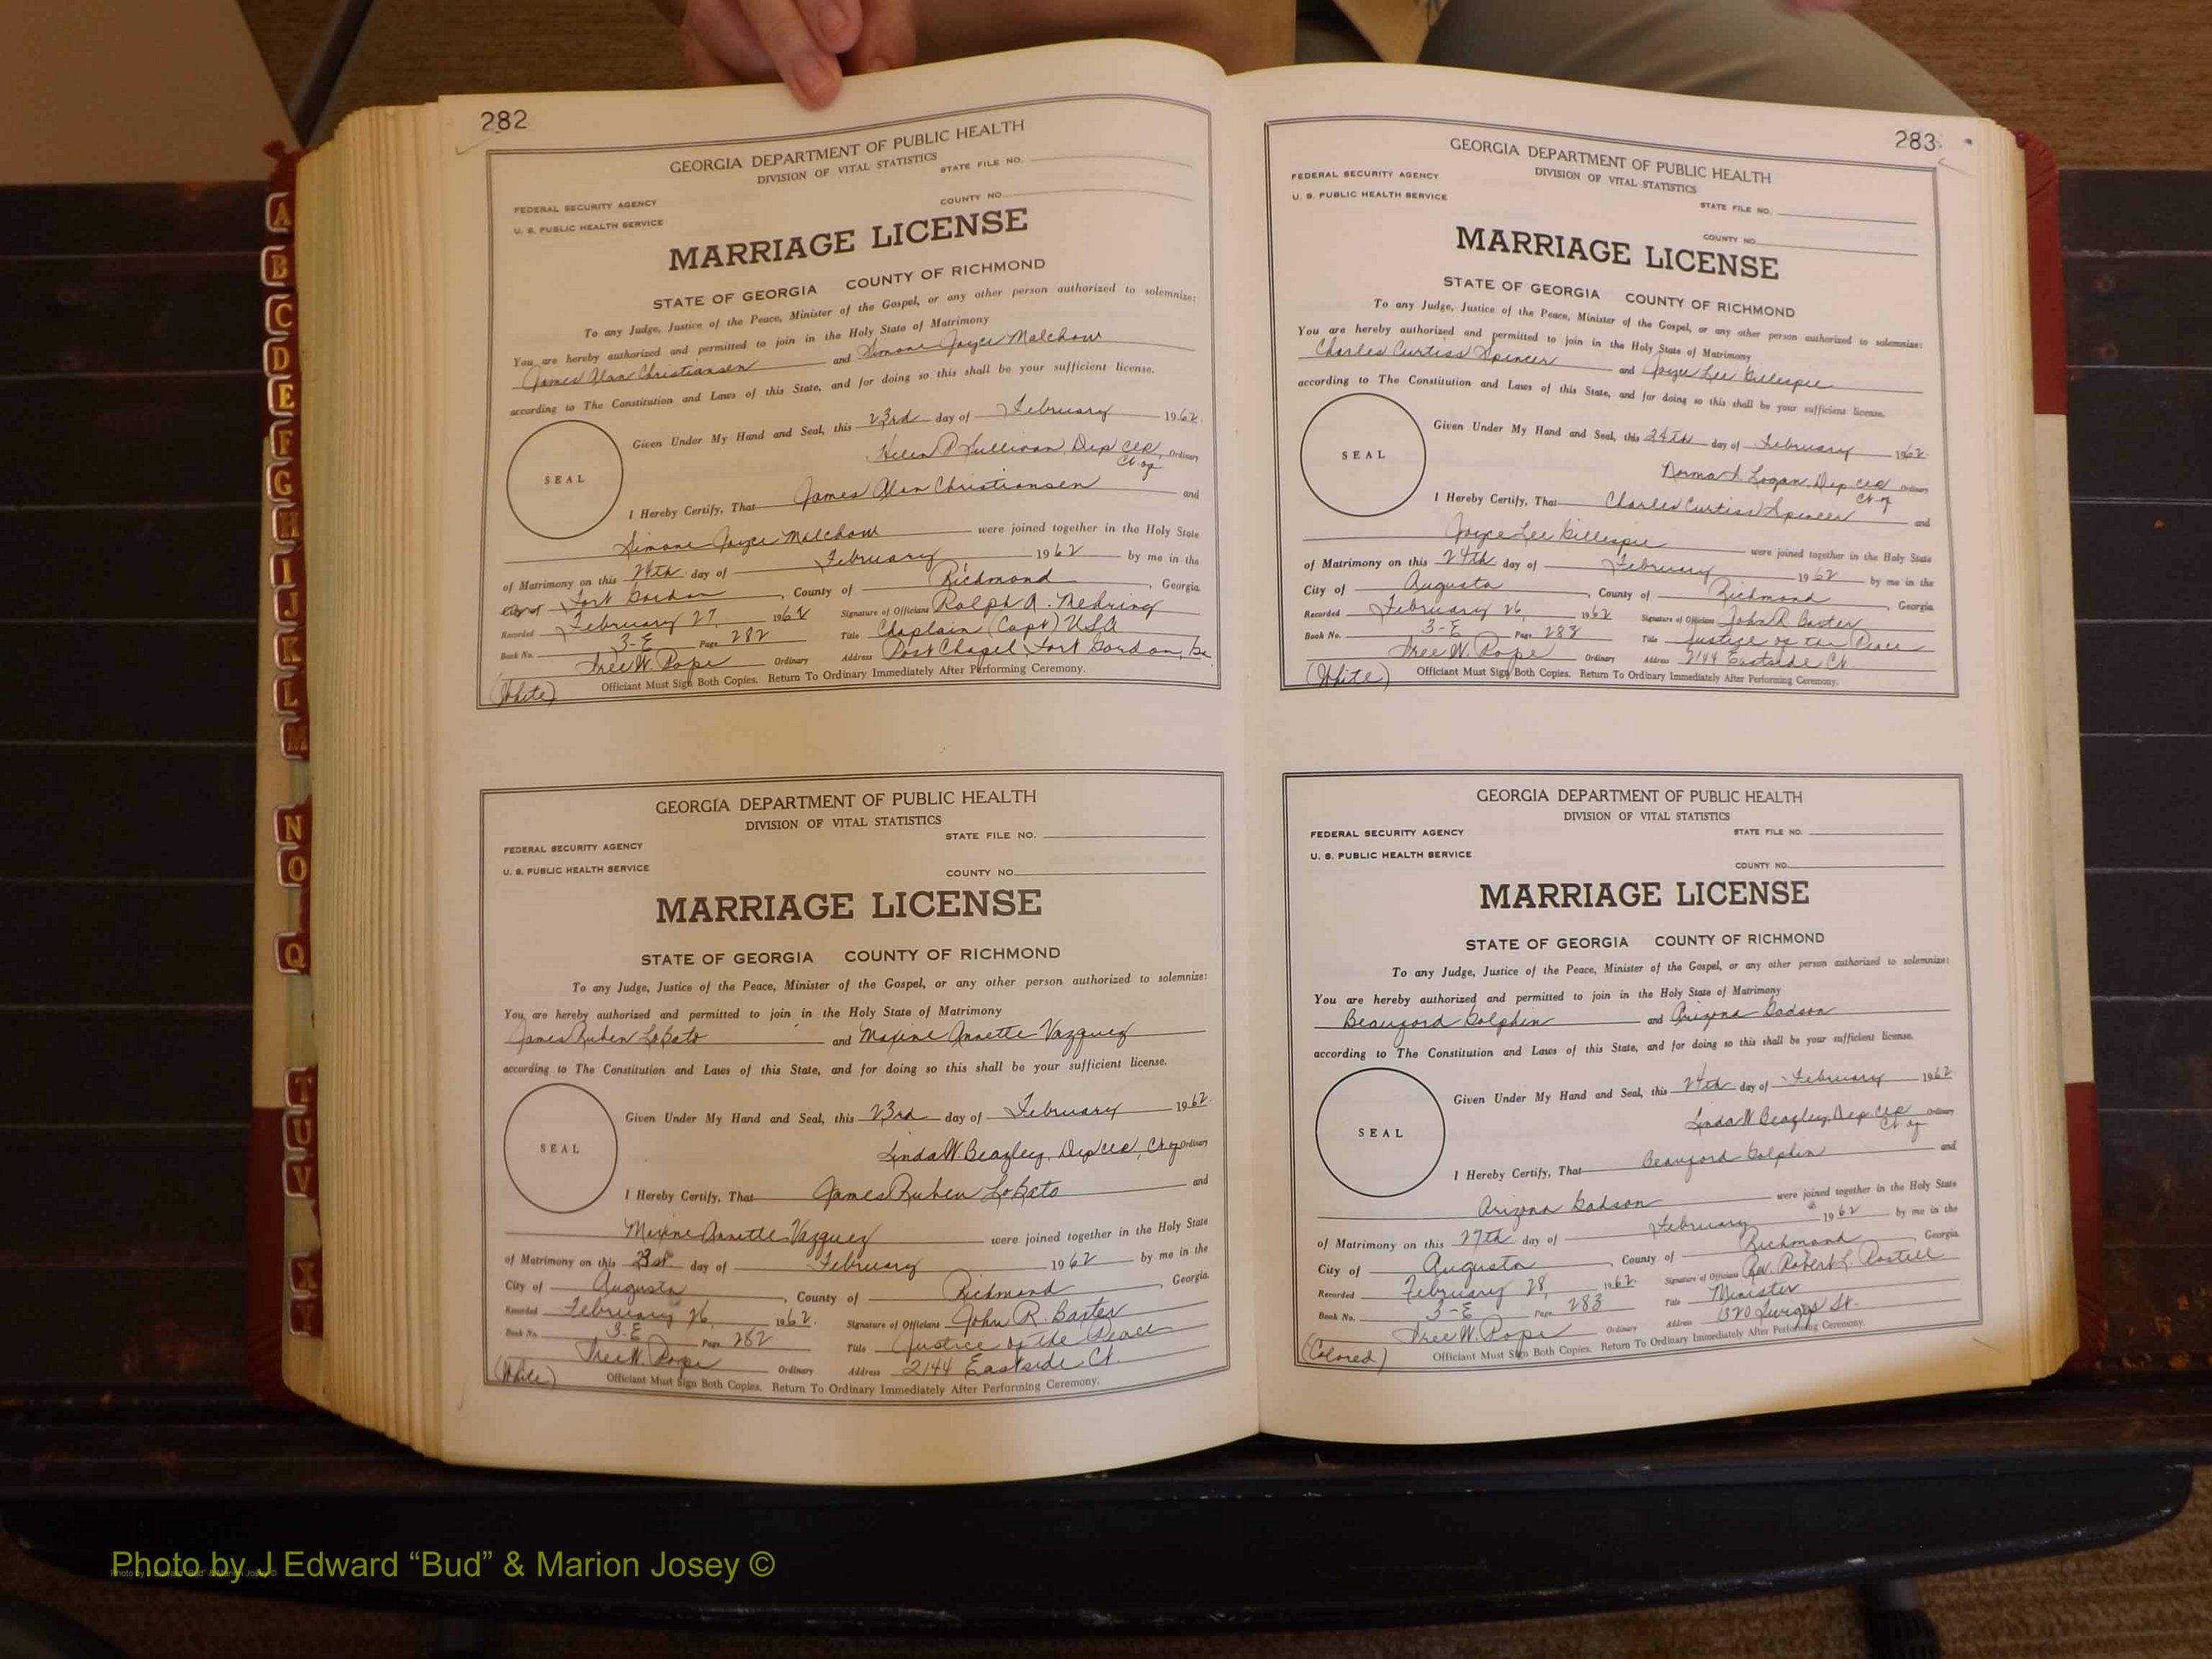 282
GEORGIA DEPARTMENT OF PUBLIC HEALTH
DIVISION OF VITAL STATISTICS
STATE FILE NO.
FEDERAL SECURITY AGENCY
COUNTY NO.
U. S. PUBLIC HEALTH SERVICE
MARRIAGE LICENSE
STATE OF GEORGIA COUNTY OF RICHMOND
To any Judge, Justice of the Peace, Minister of the Gospel, or any other person authorized to solemnize:
You are hereby authorized and permitted to join in the Holy State of Matrimony
James Alan Christiansen and Simone Joyce Malchow
according to The Constitution and Laws of this State, and for doing so this shall be your sufficient license.
Given Under My Hand and Seal, this 23rd day of February 1962.
SEAL
Helen P. Sullivan, Dep Clk, Ct. of Ordinary
I Hereby Certify, That James Alan Christiansen and
Simone Joyce Malchow were joined together in the Holy State
of Matrimony on this 24th day of February 1962 by me in the
City of Fort Gordon, County of Richmond, Georgia.
Recorded February 27, 1962 Signature of Officiant Ralph A. Nehring
Book No. 3-E Page 282 Title Chaplain (Capt) USA
Tree W. Pope Ordinary Address Post Chapel, Fort Gordon, Ga.
(White) Officiant Must Sign Both Copies. Return To Ordinary Immediately After Performing Ceremony.
GEORGIA DEPARTMENT OF PUBLIC HEALTH
DIVISION OF VITAL STATISTICS
STATE FILE NO.
FEDERAL SECURITY AGENCY
U. S. PUBLIC HEALTH SERVICE
COUNTY NO.
MARRIAGE LICENSE
STATE OF GEORGIA COUNTY OF RICHMOND
To any Judge, Justice of the Peace, Minister of the Gospel, or any other person authorized to solemnize:
You are hereby authorized and permitted to join in the Holy State of Matrimony
James Ruben Lobato and Maxine Annette Vazquez
according to The Constitution and Laws of this State, and for doing so this shall be your sufficient license.
Given Under My Hand and Seal, this 23rd day of February 1962.
SEAL
Linda W. Beazley, Dep Clk, Ct. of Ordinary
I Hereby Certify, That James Ruben Lobato and
Maxine Annette Vazquez were joined together in the Holy State
of Matrimony on this day of February 1962 by me in the
City of Augusta, County of Richmond, Georgia.
Recorded February 26, 1962. Signature of Officiant John R. Baxter
Book No. 3-E Page 282 Title Justice of the Peace
Tree W. Pope Ordinary Address 2144 Eastside Ct.
(White) Officiant Must Sign Both Copies. Return To Ordinary Immediately After Performing Ceremony.
283
GEORGIA DEPARTMENT OF PUBLIC HEALTH
DIVISION OF VITAL STATISTICS
FEDERAL SECURITY AGENCY
U. S. PUBLIC HEALTH SERVICE
STATE FILE NO.
COUNTY NO.
MARRIAGE LICENSE
STATE OF GEORGIA COUNTY OF RICHMOND
To any Judge, Justice of the Peace, Minister of the Gospel, or any other person authorized to solemnize:
You are hereby authorized and permitted to join in the Holy State of Matrimony
Charles Curtiss Spencer and Joyce Lee Gillespie
according to The Constitution and Laws of this State, and for doing so this shall be your sufficient license.
Given Under My Hand and Seal, this 24th day of February 1962.
SEAL
Norma Logan, Dep. Clk Ct of Ordinary
I Hereby Certify, That Charles Curtiss Spencer and
Joyce Lee Gillespie were joined together in the Holy State
of Matrimony on this 24th day of February 1962 by me in the
City of Augusta, County of Richmond, Georgia
Recorded February 26, 1962 Signature of Officiant John R. Baxter
Book No. 3-E Page 283 Title Justice of the Peace
Tree W. Pope Ordinary Address 2144 Eastside Ct.
(White) Officiant Must Sign Both Copies. Return To Ordinary Immediately After Performing Ceremony.
GEORGIA DEPARTMENT OF PUBLIC HEALTH
DIVISION OF VITAL STATISTICS
FEDERAL SECURITY AGENCY STATE FILE NO.
U. S. PUBLIC HEALTH SERVICE
COUNTY NO.
MARRIAGE LICENSE
STATE OF GEORGIA COUNTY OF RICHMOND
To any Judge, Justice of the Peace, Minister of the Gospel, or any other person authorized to solemnize:
You are hereby authorized and permitted to join in the Holy State of Matrimony
Beauford Golphin and Arizona Gadson
according to The Constitution and Laws of this State, and for doing so this shall be your sufficient license.
Given Under My Hand and Seal, this 24th day of February 1962
SEAL
Linda W Beazley, Dep. Clk Ct of Ordinary
I Hereby Certify, That Beauford Golphin and
Arizona Gadson were joined together in the Holy State
of Matrimony on this 27th day of February 1962 by me in the
City of Augusta, County of Richmond, Georgia.
Recorded February 28, 1962. Signature of Officiant Rev. Robert L.
Book No. 3-E Page 283 Title Minister
Tree W. Pope Ordinary Address 1320 Twiggs St.
(Colored) Officiant Must Sign Both Copies. Return To Ordinary Immediately After Performing Ceremony.
A
B
C
D
E
F
G
H
I
J
K
L
M
N
O
Q
T
U
V
X
Y
Photo by J Edward “Bud” & Marion Josey ©
Photo by J Edward “Bud” & Marion Josey ©